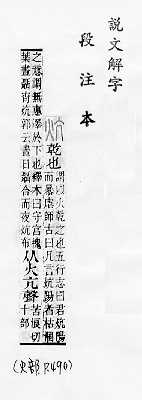 說文解字
段注本
炕 乾也 謂以火乾之也五行志曰君炕陽
而暴虐師古曰凡言炕陽者枯涸
之意謂無惠澤於下也釋木曰守宮槐
葉晝聶宵炕郭云晝日聶合而夜炕布
从火亢聲 苦浪切
十部
(火部 P.490)